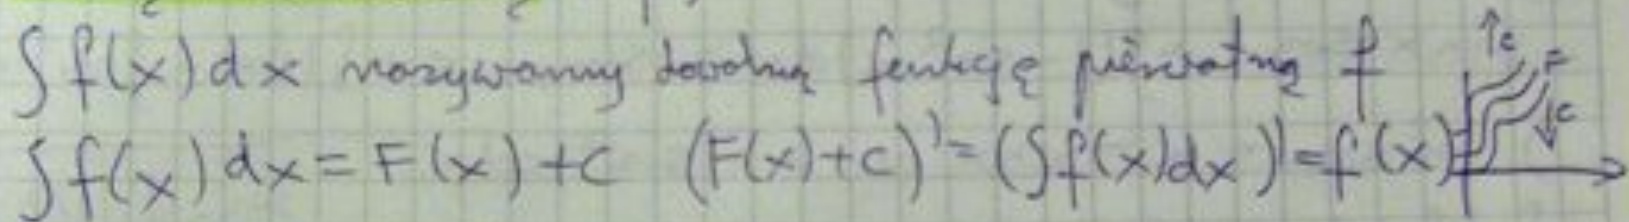 ∫ f(x) dx nazywamy dowolną funkcję pierwotną f
∫ f(x) dx = F(x) + C (F(x) + C)' = (∫ f(x) dx)' = f(x)
↑c
F
↓c